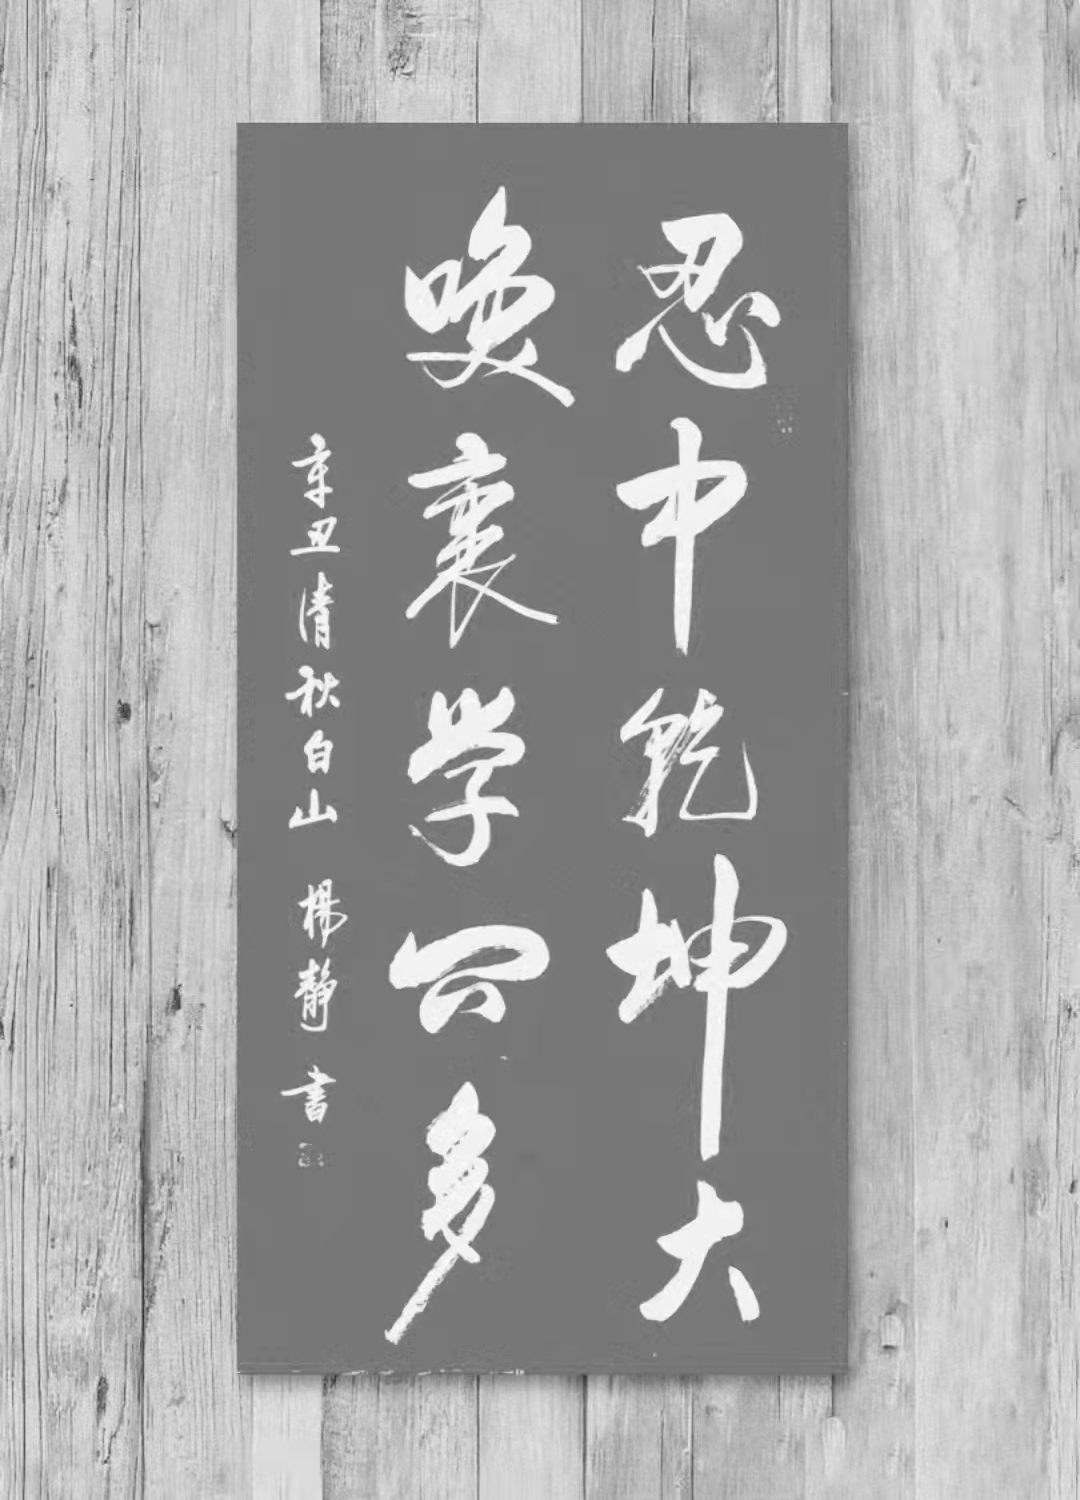 忍中乾坤大
唤裏学问多
辛丑清秋白山 楊靜 書